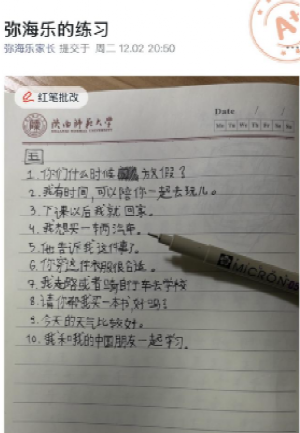 弥海乐的练习
弥海乐家长 提交于 周二 12.02 20:50
A+
红笔批改
陕西师范大学
Date / /
Mo Tu We Th Fr Sa Su
五
1. 你们什么时候放假?
2. 我有时间,可以陪你一起去玩儿。
3. 下课以后我就回家。
4. 我想买一辆汽车。
5. 他告诉我这件事了。
6. 你穿这件衣服很合适。
7. 我走路或者骑自行车去学校
8. 请你帮我买一本书,好吗?
9. 今天的天气比较好。
10. 我和我的中国朋友一起学习。
MICRON